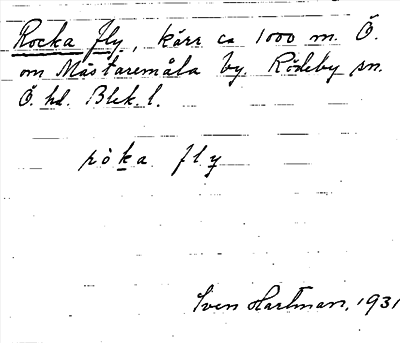 Rocka fly, kärr ca 1000 m. Ö.
om Mästaremåla by, Rödeby sn.
Ö. hd. Blek. l.
ròka fly
Sven Hartman, 1931